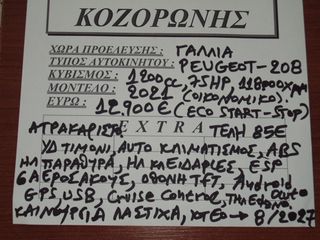 ΚΟΖΟΡΩΝΗΣ
ΧΩΡΑ ΠΡΟΕΛΕΥΣΗΣ : ΓΑΛΛΙΑ
ΤΥΠΟΣ ΑΥΤΟΚΙΝΗΤΟΥ : PEUGEOT-208
ΚΥΒΙΣΜΟΣ : 1200cc, 75HP, 118900ΧΛΜ
ΜΟΝΤΕΛΟ : 2021 (ΟΙΚΟΝΟΜΙΚΟ).
ΕΥΡΩ : 12.900€ (ECO START-STOP)
ΑΤΡΑΚΑΡΙΣΤΟ EXTRA ΤΕΛΗ 85Ε
ΥΔ ΤΙΜΟΝΙ, ΑΥΤΟ ΚΛΙΜΑΤΙΣΜΟΣ, ABS
ΗΛ ΠΑΡΑΘΥΡΑ, ΗΛ ΚΛΕΙΔΑΡΙΕΣ, ESP
6 ΑΕΡΟΣΑΚΟΥΣ, ΟΘΟΝΗ TFT, Android
GPS, USB, Cruise Control,
ΚΑΙΝΟΥΡΓΙΑ ΛΑΣΤΙΧΑ, ΚΤΕΟ → 8/2027